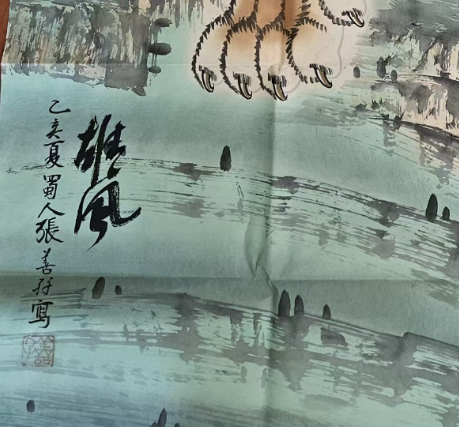 雄風
乙亥夏蜀人張善孖寫